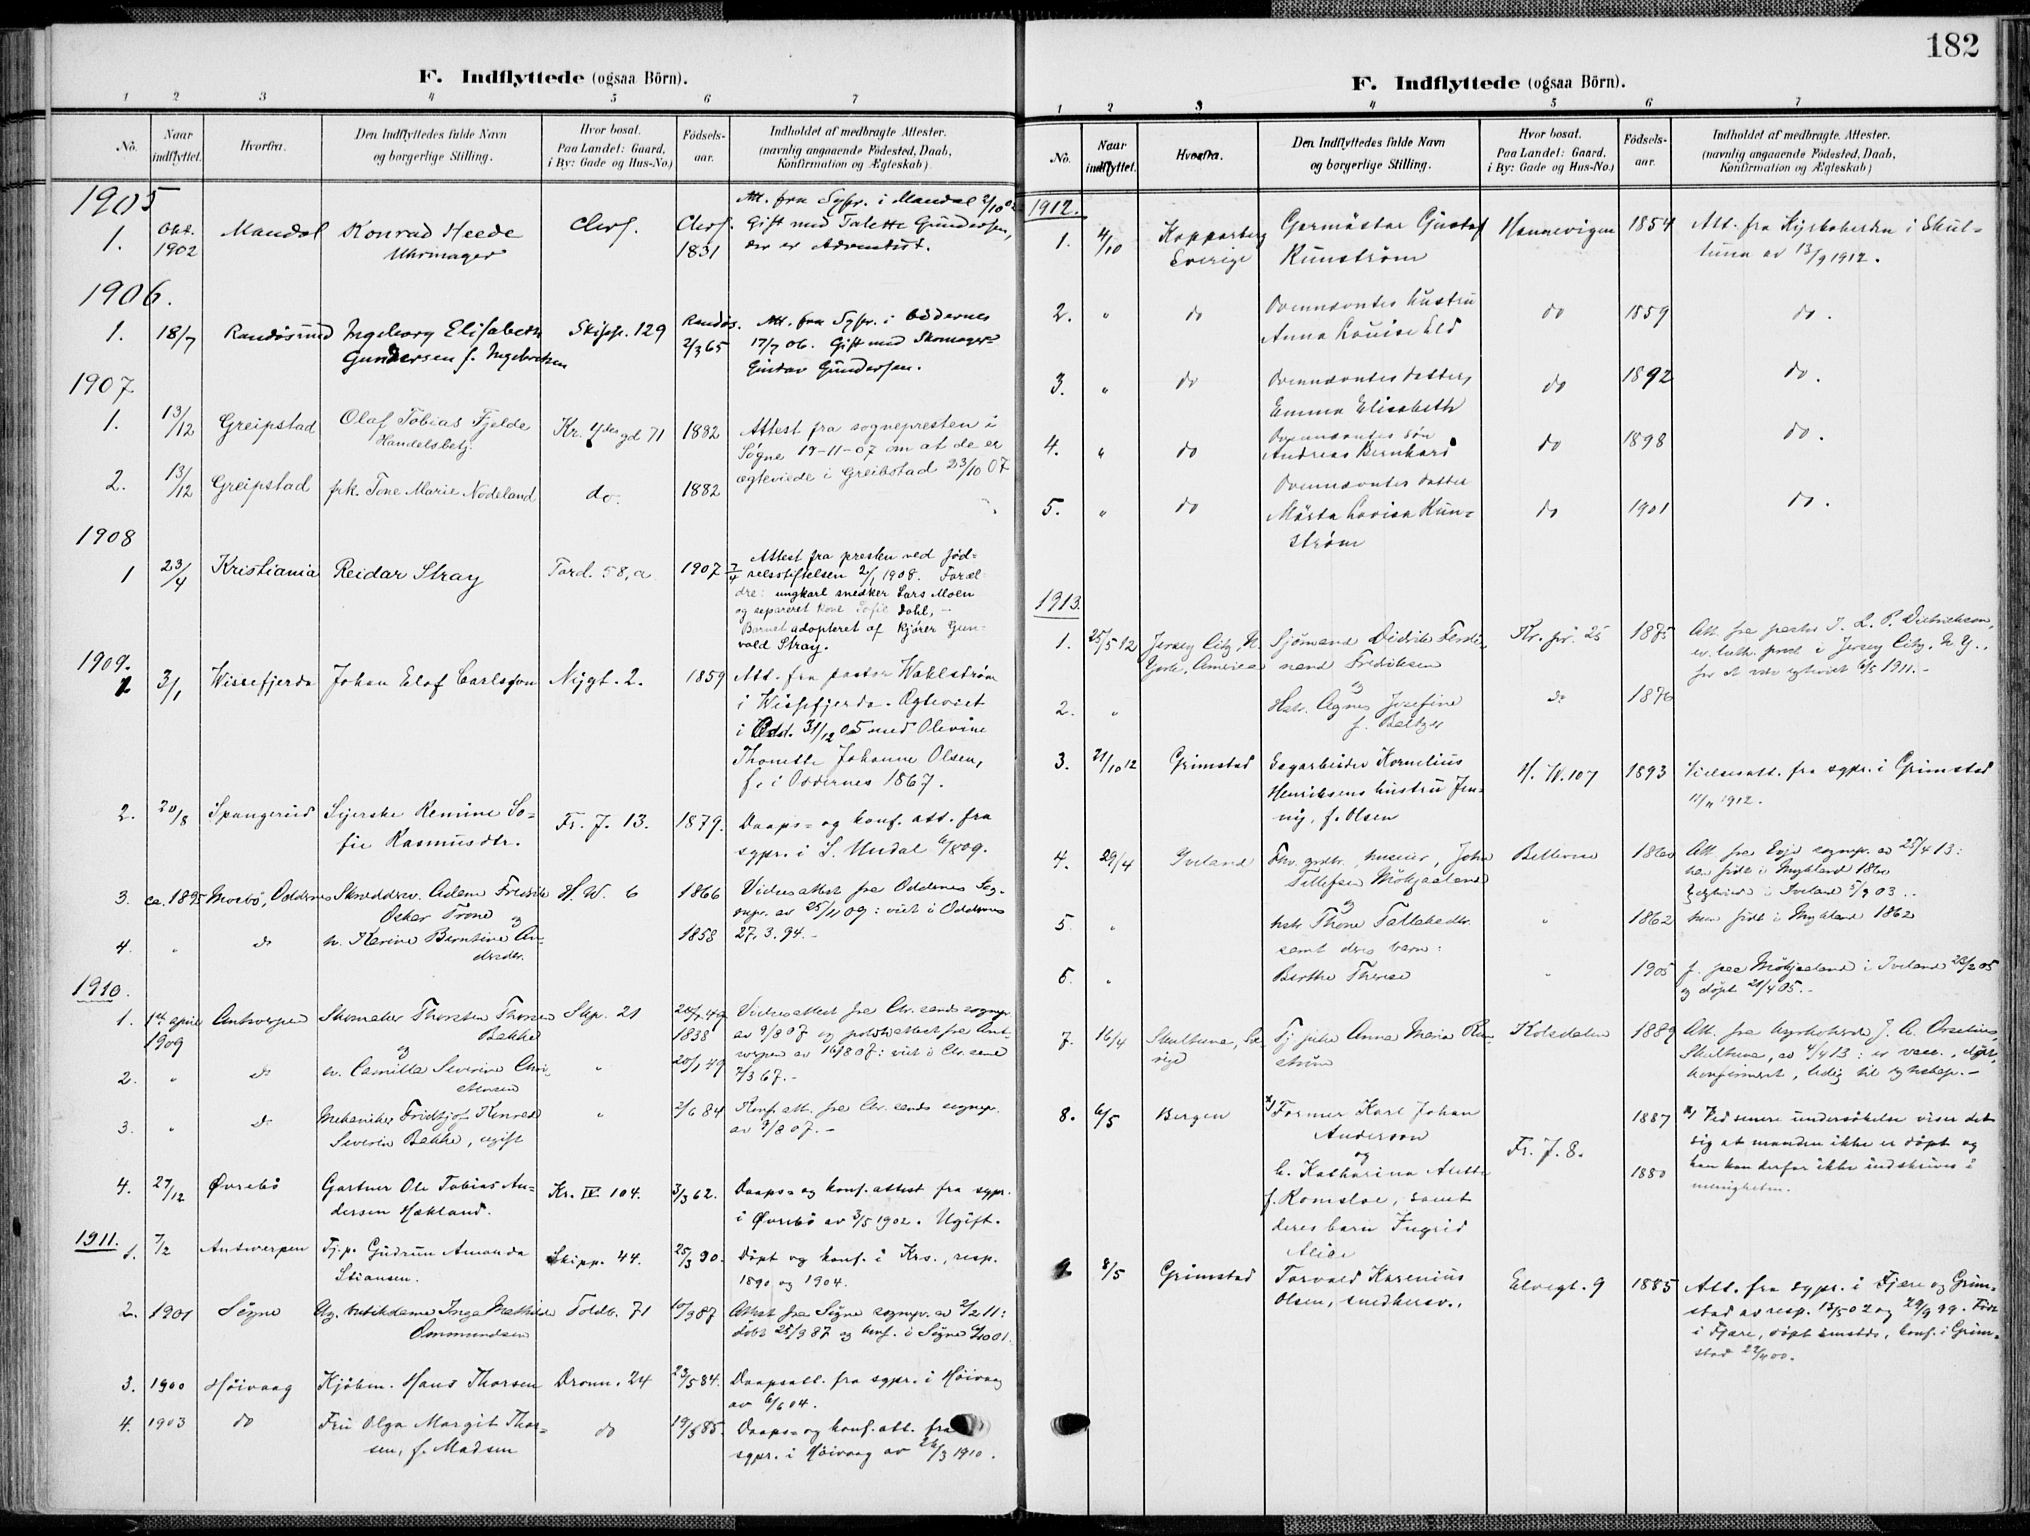 F. Indflyttede (ogsaa Börn).
1 2 3 4 5 6 7
No. Naar indflyttet. Hvorfra. Den Indflyttedes fulde Navn og borgerlige Stilling. Hvor bosat. Paa Landet: Gaard, i By: Gade og Hus-No.) Födsels-aar. Indholdet af medbragte Attester. (navnlig angaaende Födested, Daab, Konfirmation og Ægteskab).
1905
Att. fra Sgpr. i Mandal 2/10 02
1. Okt. Mandal Konrad Heede Chrs. Gift med Talette Gundersen,
1902 Uhrmager 1831 der er Adventist.
1906.
1. 18/7 Randösund Ingeborg Elisabeth Skipp. 129 Randös. Att. fra Sgpr. i Oddernes
Gundersen f. Ingebretsen 2/3 65 17/7 06. Gift med Skomager
Gustav Gundersen.
1907
1. 13/12 Greipstad Olaf Tobias Fjelde Kr. 4des gd 71 1882 Attest fra sognepresten i
Handelsbetj. Søgne 19-11-07 om at de er
2. 13/12 Greipstad frk. Tone Marie Nodeland do. 1882 ægteviede i Greibstad 23/10 07
1908
1 23/4 Kristiania Reidar Stray Tord. 58, a 1907 7/4 Attest fra presten ved fød-
selsstiftelsen 2/1 1908. Foræl-
dre: ungkarl snedker Lars Moen
og separeret kone Sofie Dahl, -
Barnet adopteret af kjører Gun-
vald Stray.
1909.
1 3/1 Wissefjerda Johan Elof Carlsson Nygt. 2. 1859 Att. fra pastor Wahlström
i Wissefjerda. Ægteviet
i Odd. 31/12 05 med Olevine
Thonette Johanne Olsen,
f. i Oddernes 1867.
2. 20/8 Spangereid Sijerske Remine So- Fr. J. 13. 1879. Daaps- og konf. att. fra
fie Rasmusdtr. sgpr. i S. Undal 6/8 09.
3. ca. 1895 Mosbö, Oddernes Skræddersv. Adam Fredrik H. W. 6 1866 Vielsesattest fra Oddernes Sog-
Oskar Trone nepr. av 25/11 09: viet i Oddernes
og 27. 3. 94.-
4. " do h. Karine Berntine An- 1858
dersdtr.
1910.
1. 1st april Antwerpen Skomaker Thorsten Thorsen Skp. 21 Vielsesattest fra Chr.sands sognepr.
1909 Bakke 1838 av 9/8 07 og prsteattest fra Ant-
og werpen av 16/8 07: viet i Chr.sand
2. " do h. Camilla Severine Chri- " 20/1 49 7/3 67.-
stensen
3. " do Mekaniker Fridtjof Konrad " 2/6 84 Konf. att. fra Chr.sands sognepr.
Severin Bakke, ugift av 9/8 07.-
4. 27/12 Øvrebö Gartner Ole Tobias An- Kr. IV. 104. 3/3 62. Daaps- og konf. attest fra sgpr.
dersen Hækland. i Øvrebö av 3/5 1902. Ugift.
1911.
1. 7/2 Antwerpen Tj.p. Gudrun Amanda Skipp. 44. 25/3 90. Döpt og konf. i Krs., resp.
Stiansen. 1890 og 1904.
2. 1901 Søgne Ug. butikdame Inga Mathilde Toldb. 71 10/3 87 Attest fra Søgne sognepr. av 2/2 11:
Ommundsen döbt 25/3 87 og konf. i Søgne 6/10 01.
3. 1900 Höivaag Kjöbm. Hans Thorsen Dronn. 24 23/5 84. Daapsatt. fra sgpr. i Höivaag
av 6/6 04.
4. 1903 do Fru Olga Margit Thor- do 19/3 85. Daaps- og konf. att. fra
sen, f. Madsen sgpr. i Höivaag av 26/3 1910.
182
F. Indflyttede (ogsaa Börn).
1 2 3 4 5 6 7
No. Naar indflyttet. Hvorfra. Den Indflyttedes fulde Navn og borgerlige Stilling. Hvor bosat. Paa Landet: Gaard, i By: Gade og Hus-No.) Födsels-aar. Indholdet af medbragte Attester. (navnlig angaaende Födested, Daab, Konfirmation og Ægteskab)
1912.
1. 4/10 Kopparberg Germästar Gustaf Hannevigen 1854 Att. fra Kyrkoherden i Skul-
Sverige Runström tuna av 13/9 1912.
2. " do Ovennævntes hustru do 1859 do.
Anna Louise Eld
3. " do Ovennævntes datter, do 1892 do.
Emma Elisabeth
4. " do Ovennævntes sön do 1898 do.
Andreas Bernhard
5. " do Ovennævntes datter do 1901 do.
Märta Lovisa Run-
ström
1913.
1. 25/5 12 Jersey City N. Sjömand Didrik Ferdi- Kr. 25 1875 Att. fra pastor J. L. P. Dietrichson,
York, Amerika nand Fredriksen ev. luth. prest i Jersey City. N. Y.,
og for at være egteviet 6/5 1911.-
2. " Hstr. Agnes Josefine do 1876
f. Beltzer
3. 21/10 12 Grimstad Sagarbeider Kornelius H. W. 107 1893 Vielsesatt. fra sgpr. i Grimstad
Henriksens hustru Jen- 12/11 1912.
ny, f. Olsen
4. 29/4 Iveland Fhv. grdbr. John Bellevue 1860 Att. fra Evje sognepr. av 25/4 13:
Tellefsen Möhjaaland han født i Mykland 1860
og Egteviet i Iveland 03.
5. " hstr. Thone Tallaksdtr. " 1862 hun født i Mykland 1862
samt deres barn:
6. " Birthe Therese " 1905 f. paa Möhjaaland i Iveland 28/2 05
og döpt 21/4 05.-
7. 16/4 Skultuna, Sve- Tj. pike Anna Maria Run- Kolsdalen 1889 Att. fra kyrkoherde J. A.
rige ström Skultuna, av 4/4 13: er vacc., döpt,
konfirmert, ledig til egteskap.-
8. 6/5 Bergen x) Former Karl Johan 1887 x) Ved senere undersökelse viser det
Anderson Fr. J. 8. sig at manden ikke er döpt og
og han kan derfor ikke indskrives i
h. Katharina Anette 1880 menigheten.
f. Romsloe, samt
deres barn Ingrid
Alice
9 8/5 Grimstad Torvald Karenius Elvegt. 9 1885 Att. fra sygpr. i Fjære og Grim-
Olsen, snedkersv., stad av resp. 13/5 02 og 29/9 99. Födt
i Fjære, döpt smstds, konf. i Grim-
stad 22/4 00.